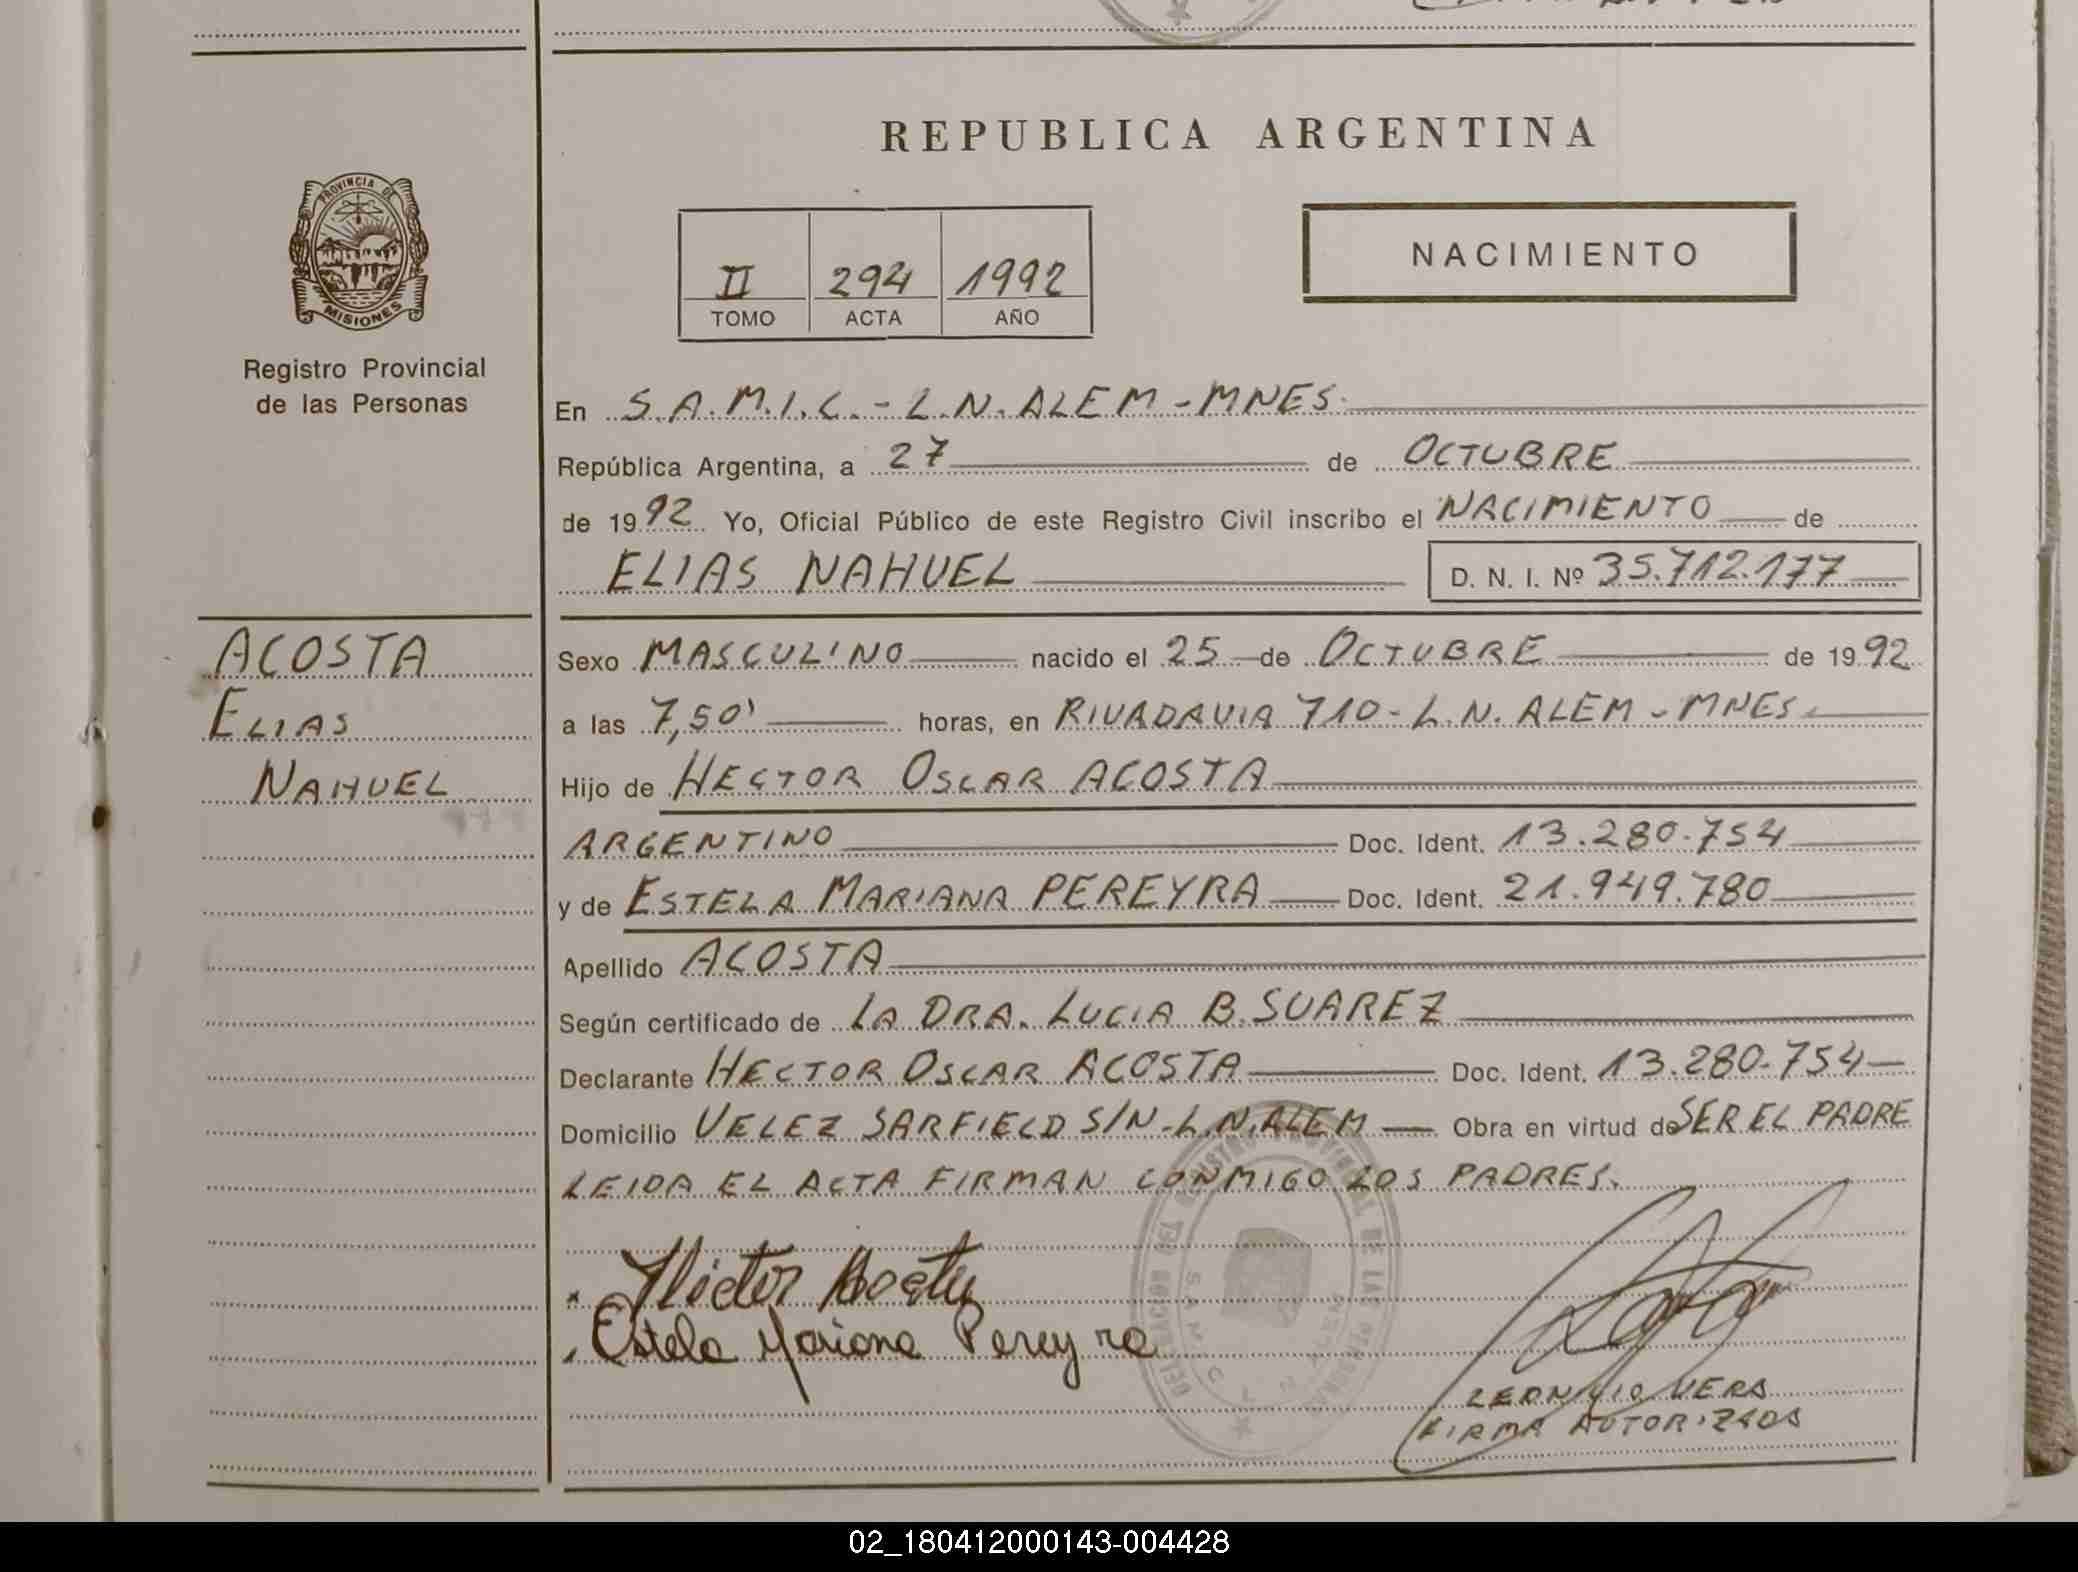 REPUBLICA ARGENTINA
PROVINCIA DE
MISIONES
Registro Provincial
de las Personas
II 294 1992
TOMO ACTA AÑO
NACIMIENTO
En S.A.M.I.C.-L.N.ALEM-MNES.
República Argentina, a 27 de OCTUBRE
de 1992 Yo, Oficial Público de este Registro Civil inscribo el NACIMIENTO de
ELIAS NAHUEL D. N. I. Nº 35.712.177
ACOSTA
ELIAS
NAHUEL
Sexo MASCULINO nacido el 25 de OCTUBRE de 1992
a las 7,50' horas, en RIVADAVIA 710-L.N.ALEM-MNES.
Hijo de HECTOR OSCAR ACOSTA
ARGENTINO Doc. Ident. 13.280.754
y de ESTELA MARIANA PEREYRA Doc. Ident. 21.949.780
Apellido ACOSTA
Según certificado de LA DRA. LUCIA B.SUAREZ
Declarante HECTOR OSCAR ACOSTA Doc. Ident. 13.280.754
Domicilio VELEZ SARFIELD S/N-L.N.ALEM Obra en virtud de SER EL PADRE
LEIDA EL ACTA FIRMAN CONMIGO LOS PADRES.
Héctor Acosta
Estela Mariana Pereyra
VERA
FIRMA AUTORIZADA
02_180412000143-004428